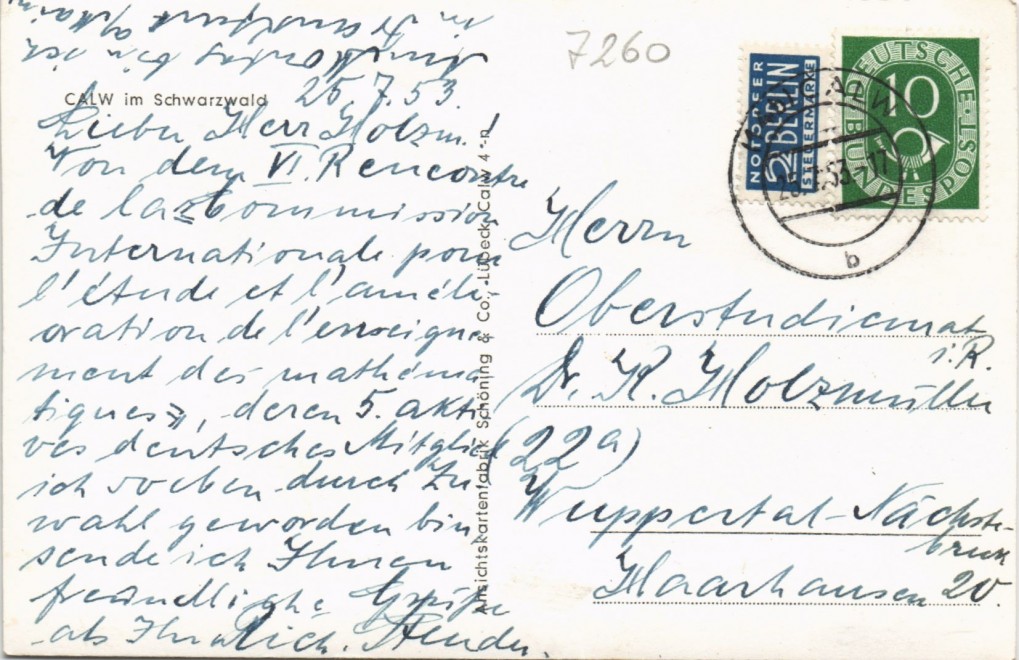 7260
CALW im Schwarzwald
26.7.53.
Lieber Herr Holzm.!
Von dem VI. Rencontre
de la «Commission
Internationale pour
l'étude et l'améli-
oration de l'enseigne
ment des mathéma
tiques», deren 5. akti
ves deutsches Mitglied
ich soeben durch Zu
wahl geworden bin
sende ich Ihnen
freundliche Grüße
als Ihr
bin ich
in Frankfurt
Ansichtskartenfabrik Schöning & Co., Lübeck Calw 4 -n
NOTOPFER
2 BERLIN
STEUERMARKE
DEUTSCHE BUNDESPOST
10
CALW
53-17
b
Herrn
Oberstudienrat
i.R.
Dr. K. Holzmüller
(22a)
Wuppertal-Nächste-
breck
Haarhausen 20.